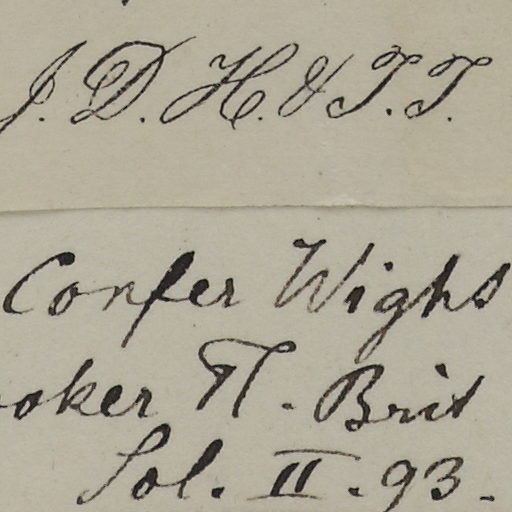 J. D. H. & T. T.
Confer Wight
ooker Fl. Brit
Vol. II. 93.